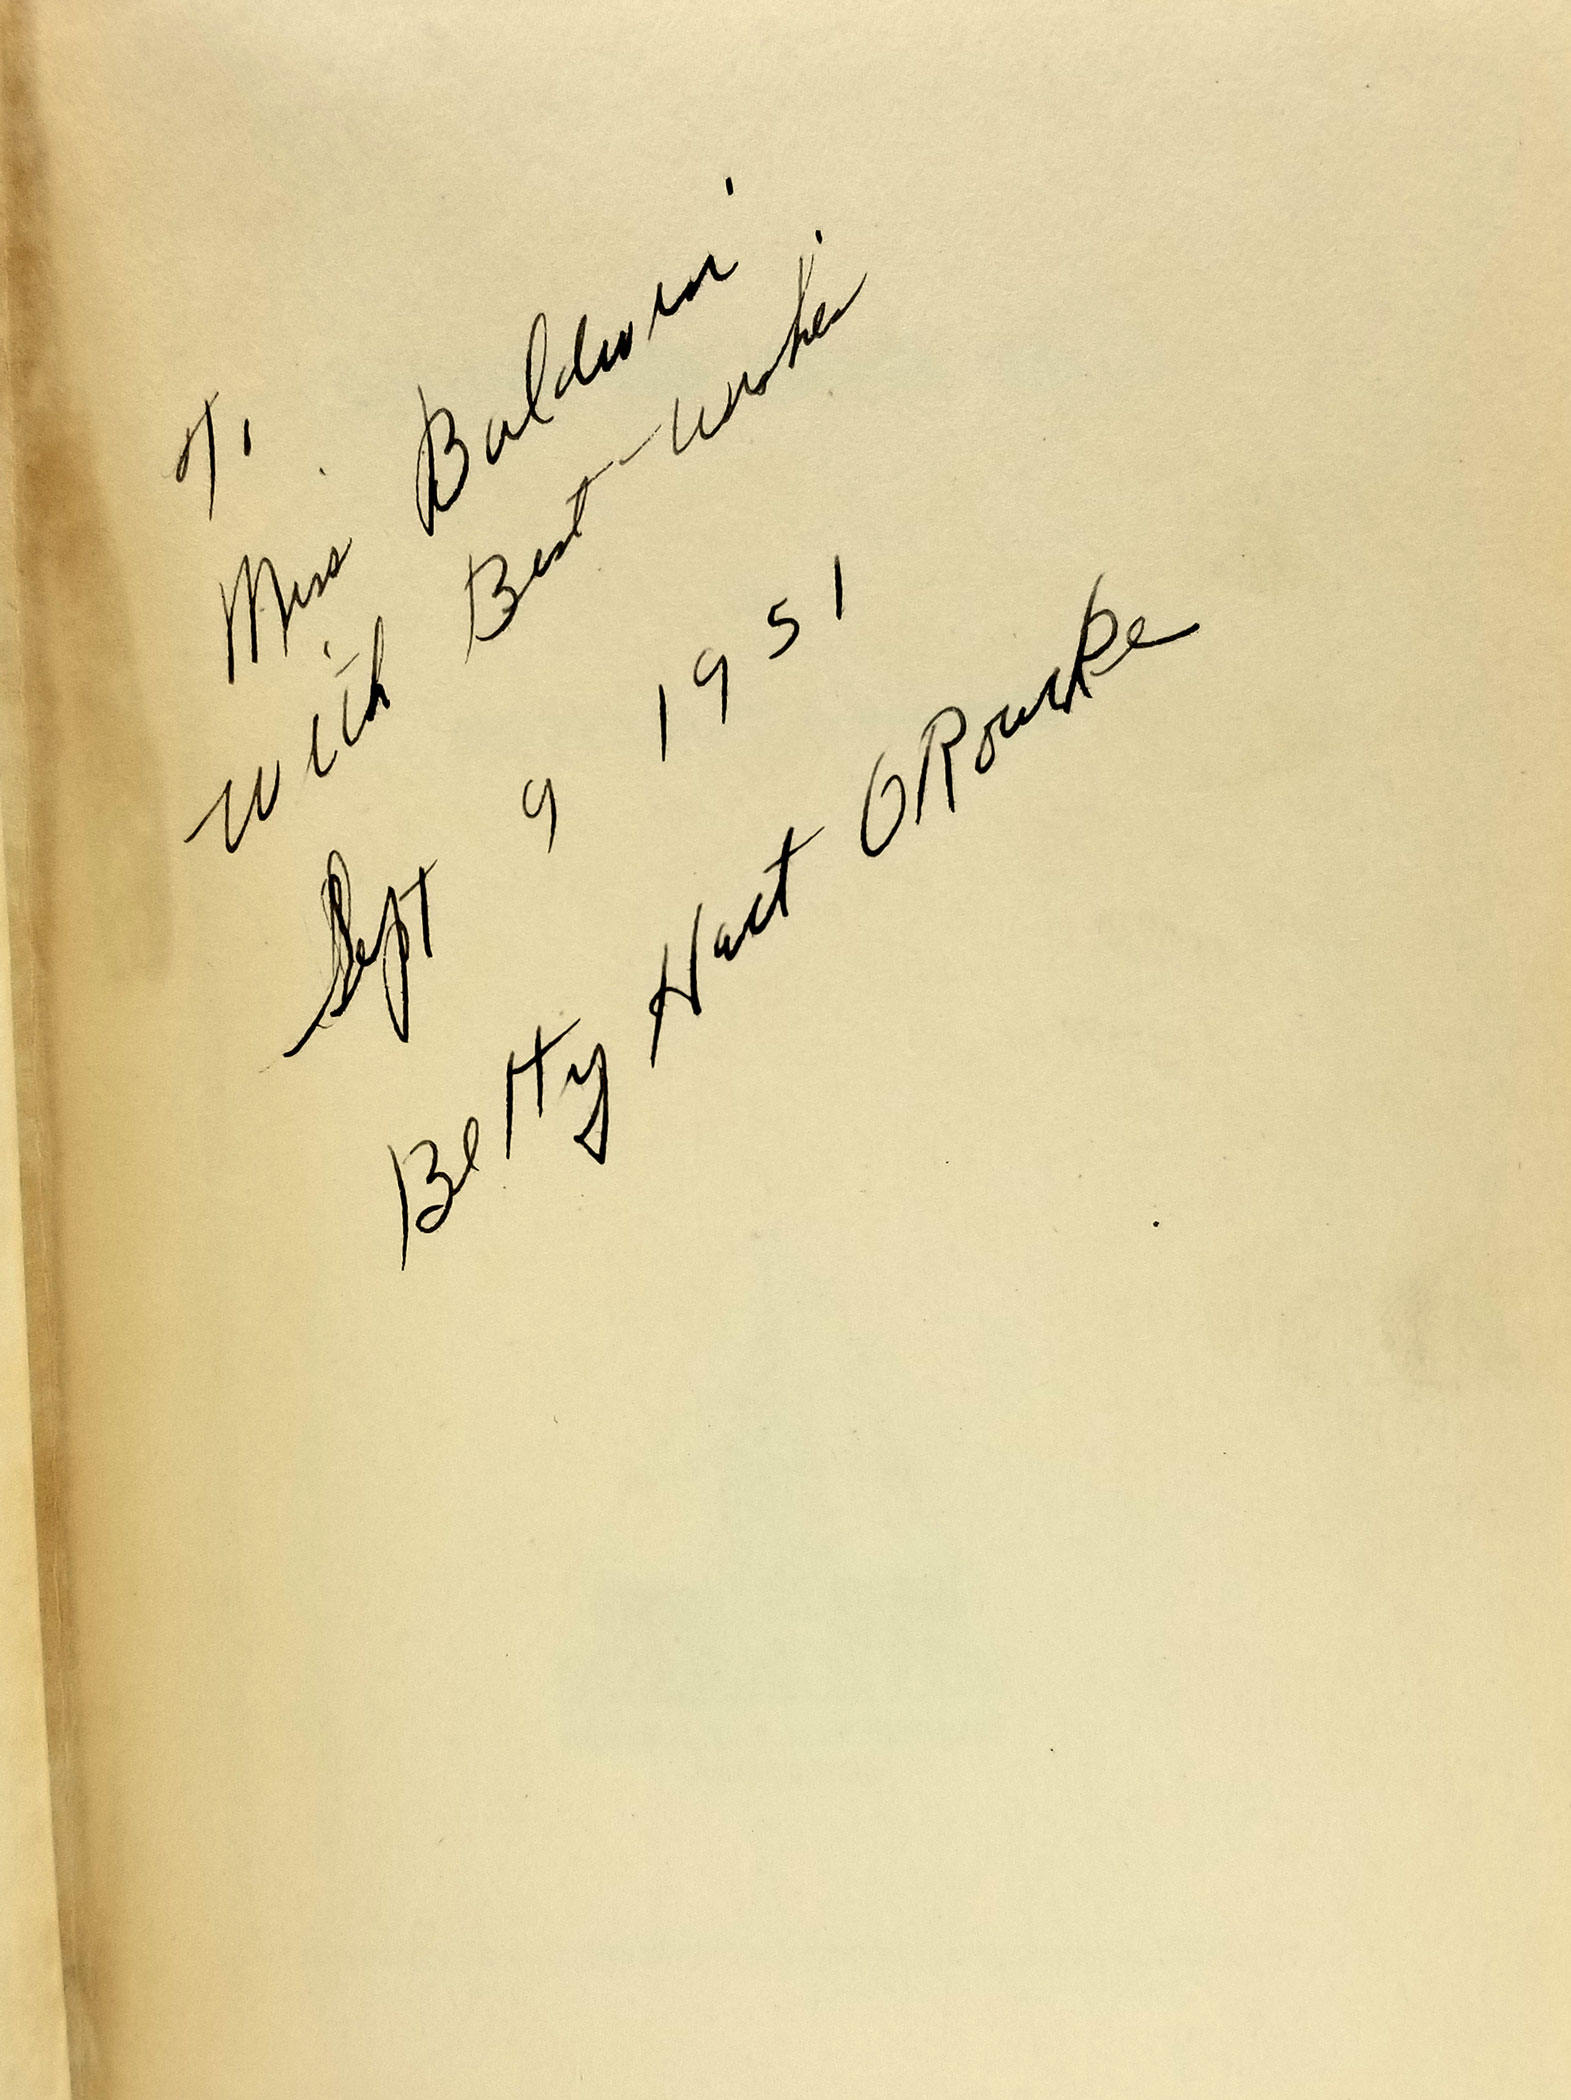 To
Miss Baldwin
With Best Wishes
Sept 9 1951
Betty Hart ORourke